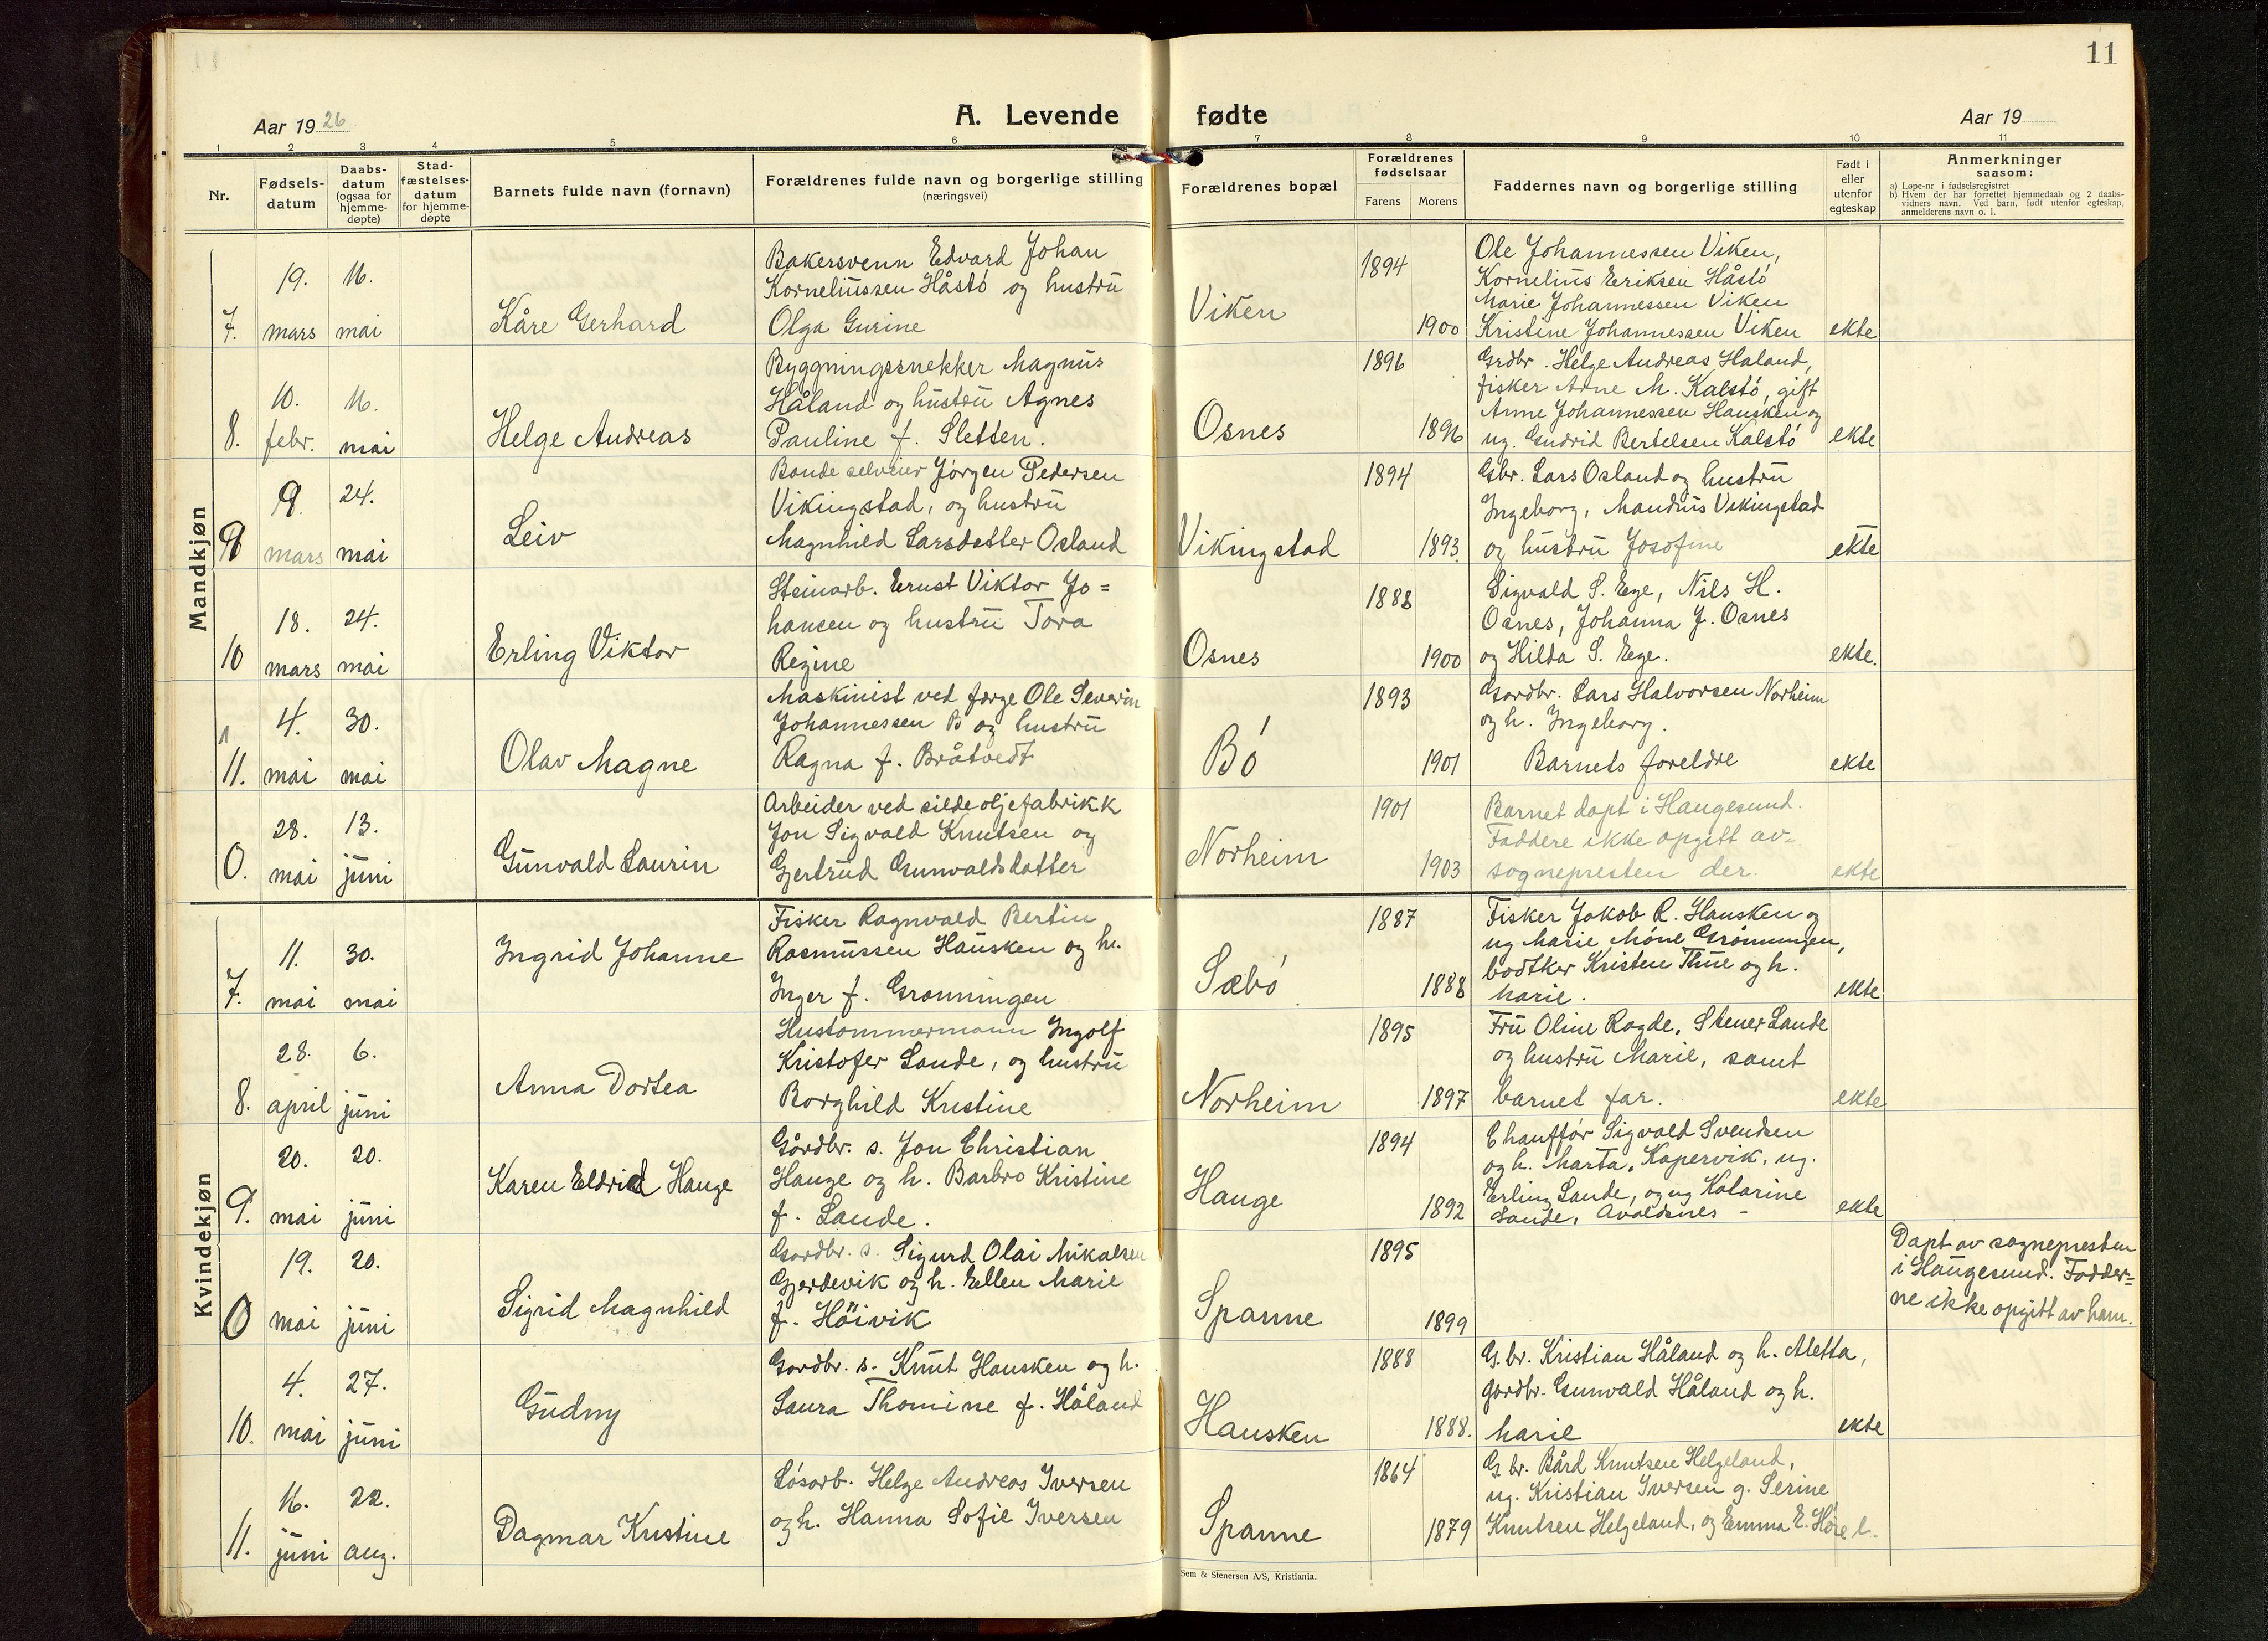 11
Aar 1926
A. Levende fødte
Aar 19
1 2 3 4 5 6 7 8 9 10 11
Nr.
Fødsels-
datum
Daabs-
datum
(ogsaa for
hjemme-
døpte)
Stad-
fæstelses-
datum
for hjemme-
døpte
Barnets fulde navn (fornavn)
Forældrenes fulde navn og borgerlige stilling
(næringsvei)
Forældrenes bopæl
Forældrenes
fødselsaar
Farens Morens
Faddernes navn og borgerlige stilling
Født i
eller
utenfor
egteskap
Anmerkninger
saasom:
a) Løpe-nr i fødselsregistret
b) Hvem der har forrettet hjemmedaab og 2 daabs-
vidners navn. Ved barn, født utenfor egteskap,
anmelderens navn o. l.
Mandkjøn
7.
19.
mars
16.
mai
Kåre Gerhard
Bakersvenn Edvard Johan
Korneliussen Håstó og hustru
Olga Gurine
Viken
1894
1900
Ole Johannessen Viken,
Kornelius Eriksen Håstó
Marie Johannessen Viken
Kristine Johannessen Viken
ekte
8.
10.
febr.
16.
mai
Helge Andreas
Byggningssnekker Magnus
Håland og hustru Agnes
Pauline f. Sletten.
Osnes
1896
1896
Grdbr. Helge Andreas Haland,
fisker Arne M. Kalstó, gift
Anne Johannessen Hausken og
ug. Gudrid Bertelsen Kalstó
ekte
9
9.
mars
24.
mai
Leiv
Bonde selveier Jórgen Pedersen
Vikingstad, og hustru
Magnhild Larsdatter Osland
Vikingstad
1894
1893
Gbr. Lars Osland og hustru
Ingeborg, Mandius Vikingstad
og hustru Josofine
ekte
10
18.
mars
24.
mai
Erling Viktor
Steinarb. Ernst Viktor Jo=
hansen og hustru Tora
Regine
Osnes
1888
1900
Sigvald S. Ege, Nils H.
Osnes, Johanna J. Osnes
og Hilda S. Ege.
ekte.
11.
4.
mai
30.
mai
Olav Magne
Maskinist ved færge Ole Severin
Johannessen Bó og hustru
Ragna f. Bråtvedt
Bó
1893
1901
Gardbr. Lars Halvorsen Norheim
og h. Ingeborg.
Barnets foreldre
ekte
0.
28.
mai
13.
juni
Gunvald Laurin
Arbeider ved sildeoljefabrikk
Jon Sigvald Knutsen og
Gjertrud Gunvaldsdatter
Norheim
1901
1903
Barnet døpt i Haugesund.
Faddere ikke opgitt av-
sognepresten der.
ekte
Kvindekjøn
7.
11.
mai
30.
mai
Ingrid Johanne
Fisker Ragnvald Bertin
Rasmussen Hausken og h.
Inger f. Grønningen
Sæbó
1887
1888
Fisker Jakob R. Hausken og
ug Marie Móne Grónningen,
bødtker Kristen Thue og h.
Marie.
ekte
8.
28.
april
6.
juni
Anna Dortea
Hustømmermann Ingolf
Kristofer Sande, og hustru
Borghild Kristine
Norheim
1895
1897
Fru Oline Rogde, Stener Sande
og hustru Marie, samt
barnet far.
ekte
9.
20.
mai
20.
juni
Karen Eldrid Hauge
Gårdbr. s. Jon Christian
Hauge og h. Barbro Kristine
f. Sande.
Hauge
1894
1892
Chauffør Sigvald Svendsen
og h. Marta, Kopervik, ug.
Erling Sande, og ug Katarine
Sande, Avaldsnes -
ekte
0
19.
mai
20.
juni
Sigrid Magnhild
Gardbr. s. Sigurd Olai Mikalsen
Gjerdevik og h. Ellen Marie
f. Höivik
Spanne
1895
1899
Døpt av sognepresten
i Haugesund. Fadder=
ne ikke opgitt av ham.
10.
4.
mai
27.
juni
Gudny
Gardbr. s. Knut Hausken og h.
Laura Thomine f. Håland
Hausken
1888
1888.
G.br. Kristian Håland og h. Aletta,
gardbr. Gunvald Håland og h.
Marie
ekte
11.
16.
juni
22.
aug.
Dagmar Kristine
Lósarb. Helge Andreas Iversen
og h. Hanna Sofie Iversen
Spanne
1864
1879
G.br. Bård Knutsen Helgeland,
ug. Kristian Iversen g. Serine
Knutsen Helgeland, og Emma E.
Sem & Stenersen A/S, Kristiania.